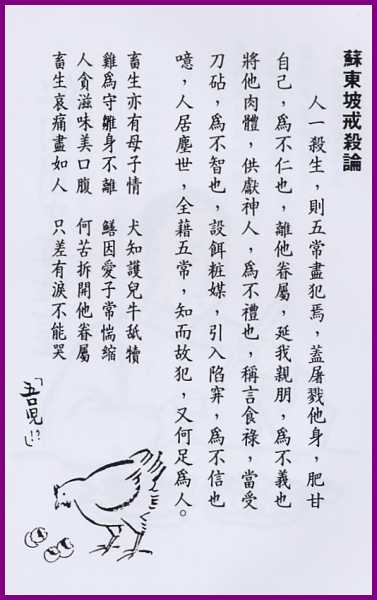 蘇東坡戒殺論
人一殺生,則五常盡犯焉,蓋屠戮他身,肥甘
自己,為不仁也,離他眷屬,延我親朋,為不義也
將他肉體,供獻神人,為不禮也,稱言食祿,當受
刀砧,為不智也,設餌粧媒,引入陷穽,為不信也
噫,人居塵世,全藉五常,知而故犯,又何足為人。
畜生亦有母子情 犬知護兒牛舐犢
雞為守雛身不離 鱔因愛子常惴縮
人貪滋味美口腹 何苦拆開他眷屬
畜生哀痛盡如人 只差有淚不能哭
「吾兒!?」